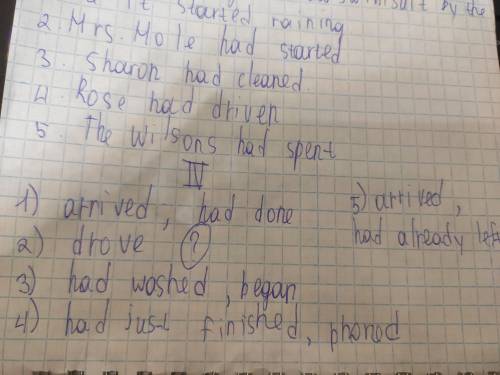 it started raining swimsuit by the
2. Mrs. Mole had started
3. Sharon had cleaned.
4. Rose had driven
5. The Wilsons had spent
IV
1) arrived, had done
2) drove ?
3) had washed, began
4) had just finished, phoned
5) arrived,
had already left